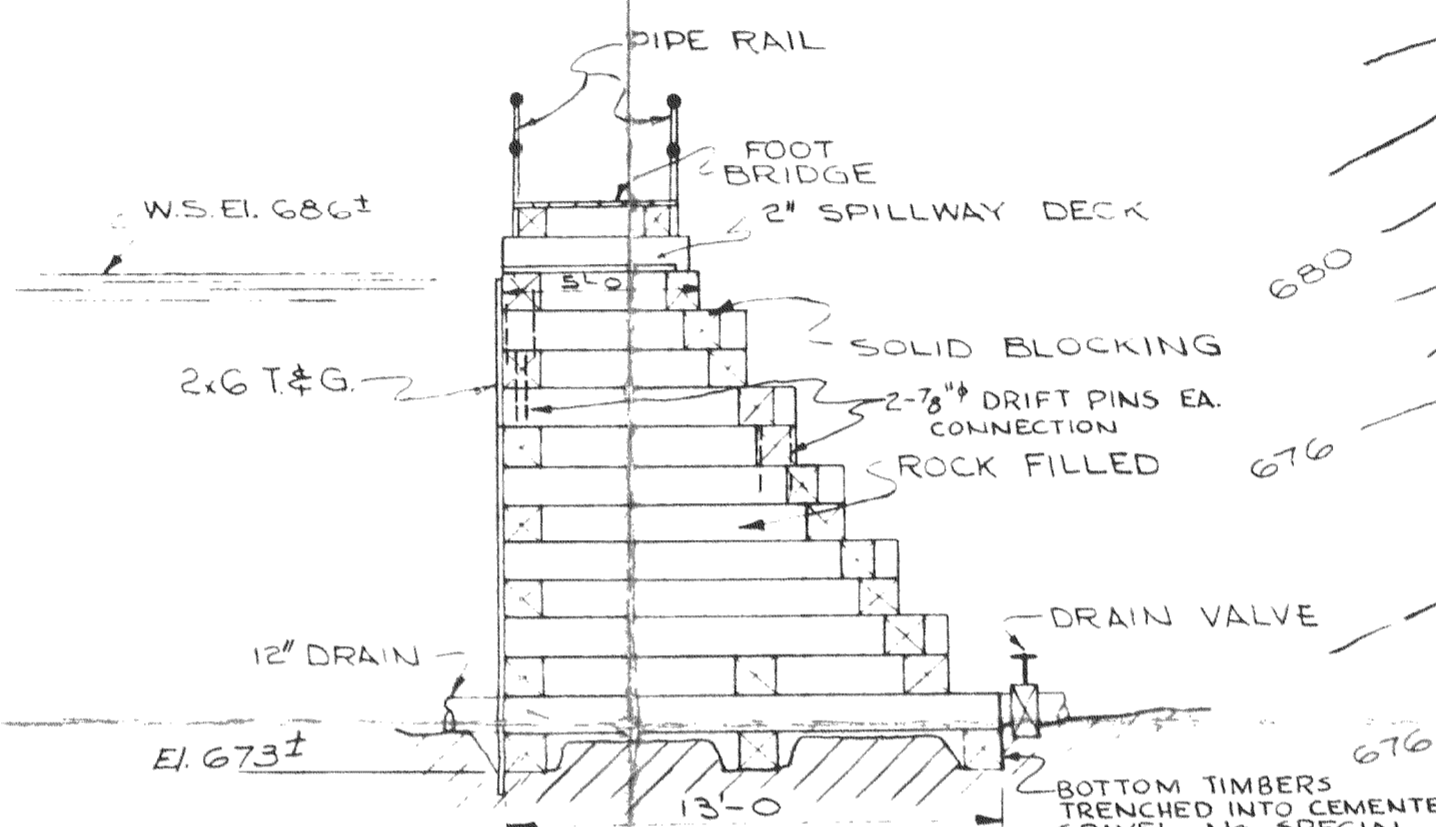 PIPE RAIL
FOOT
BRIDGE
W.S.El. 686±
2" SPILLWAY DECK
5'-0
680
SOLID BLOCKING
2x6 T.&G.
2-7/8"ϕ DRIFT PINS EA.
CONNECTION
676
ROCK FILLED
DRAIN VALVE
12" DRAIN
El. 673±
676
13'-0
BOTTOM TIMBERS
TRENCHED INTO CEMENTE